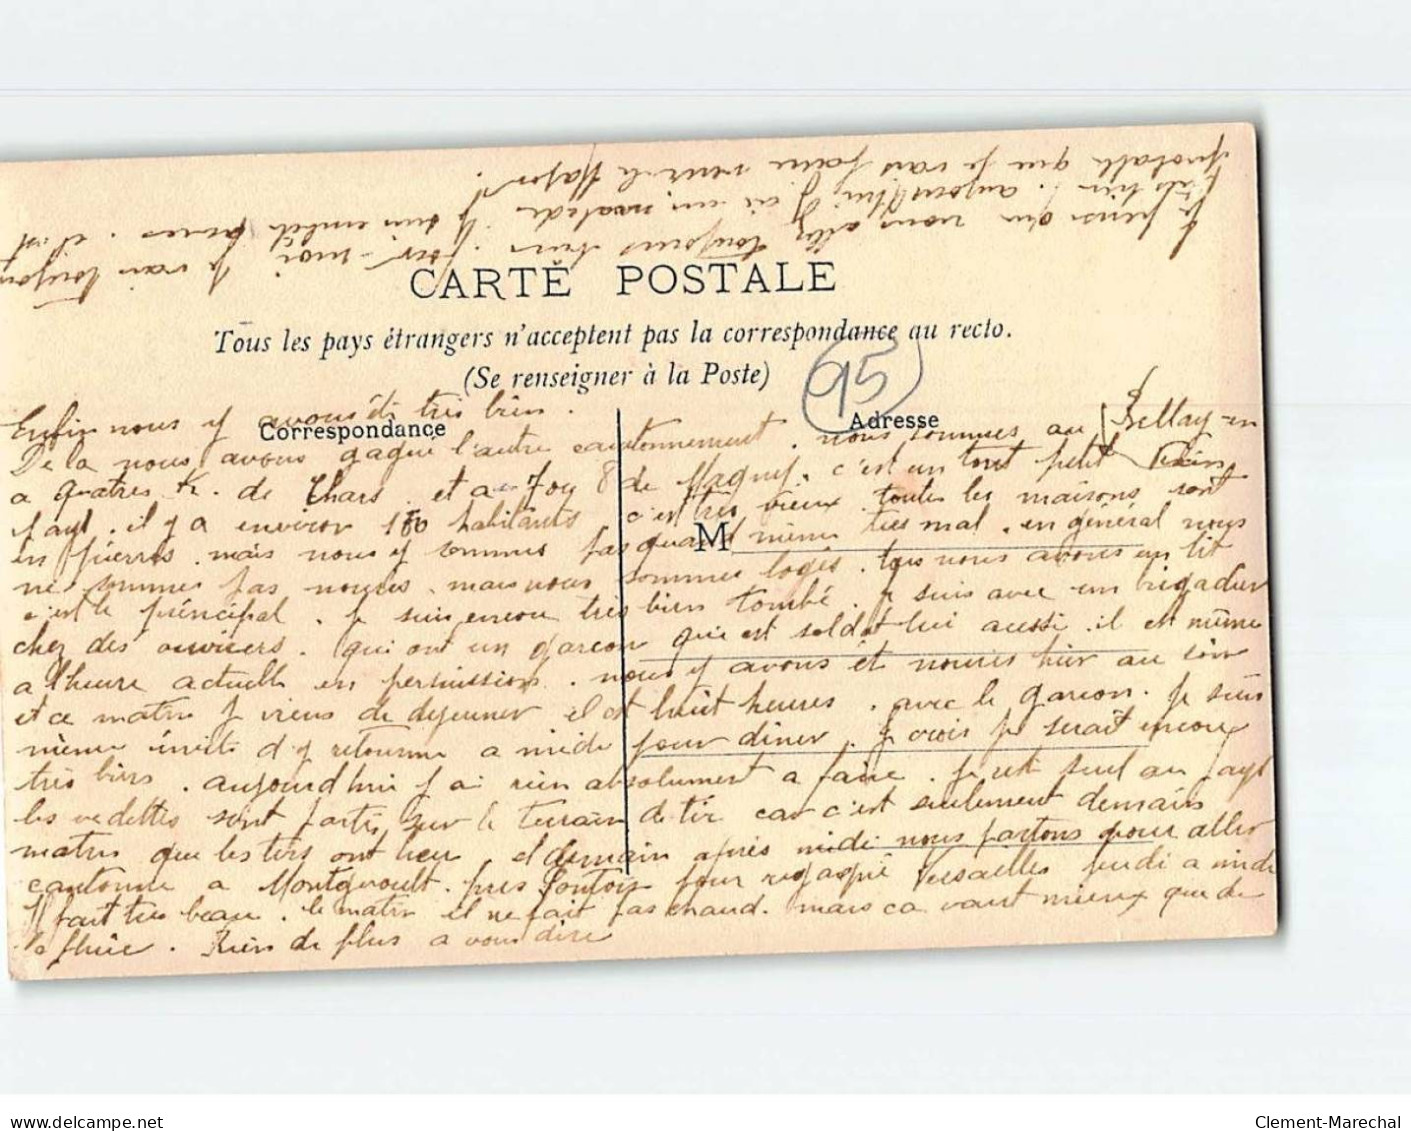 Je pense que vous allez toujours bien. Pour moi je vais toujours
très bien. aujourd'hui j'ai un malade
probable que je vais faire venir le Major.
CARTE POSTALE
Tous les pays étrangers n'acceptent pas la correspondance au recto.
(Se renseigner à la Poste)
95
Correspondance
Adresse
M
Enfin nous y avons été très bien.
De la nous avons gagné l'autre cantonnement. nous sommes au Bellay-en
a quatres K. de Thars et a 8 de Magny. c'est un tout petit Vexin
payt. il y a environ 180 habitants, c'est très vieux. toutes les maisons sont
en pierres. mais nous y sommes pas quand même très mal. en général nous
ne sommes pas nourris. mais nous sommes logés. tous nous avons un lit
c'est le principal. Je suis encore très bien tombé. Je suis avec un brigadier
chez des ouvriers. qui ont un garcon qui est soldat lui aussi. il est même
a l'heure actuelle en permission. nous y avons été nourris hier au soir
et ce matin j viens de dejeuner il est huit heures. avec le garcon. Je suis
même invité d'y retourner a midi pour diner. Je crois je serait encore
très bien. aujourd'hui j'ai rien absolument a faire. Je reste seul au payt
les vedettes sont partis sur le terrain de tir car c'est seulement demain
matin que les tirs ont lieu, et demain après midi nous partons pour aller
cantonner a Montgeroult. près Pontoise pour regagné Versailles jeudi a midi
Il fait très beau. le matin il ne fait pas chaud. mais ca vaut mieux que de
la pluie. Rien de plus a vous dire
www.delcampe.net
Clement-Marechal